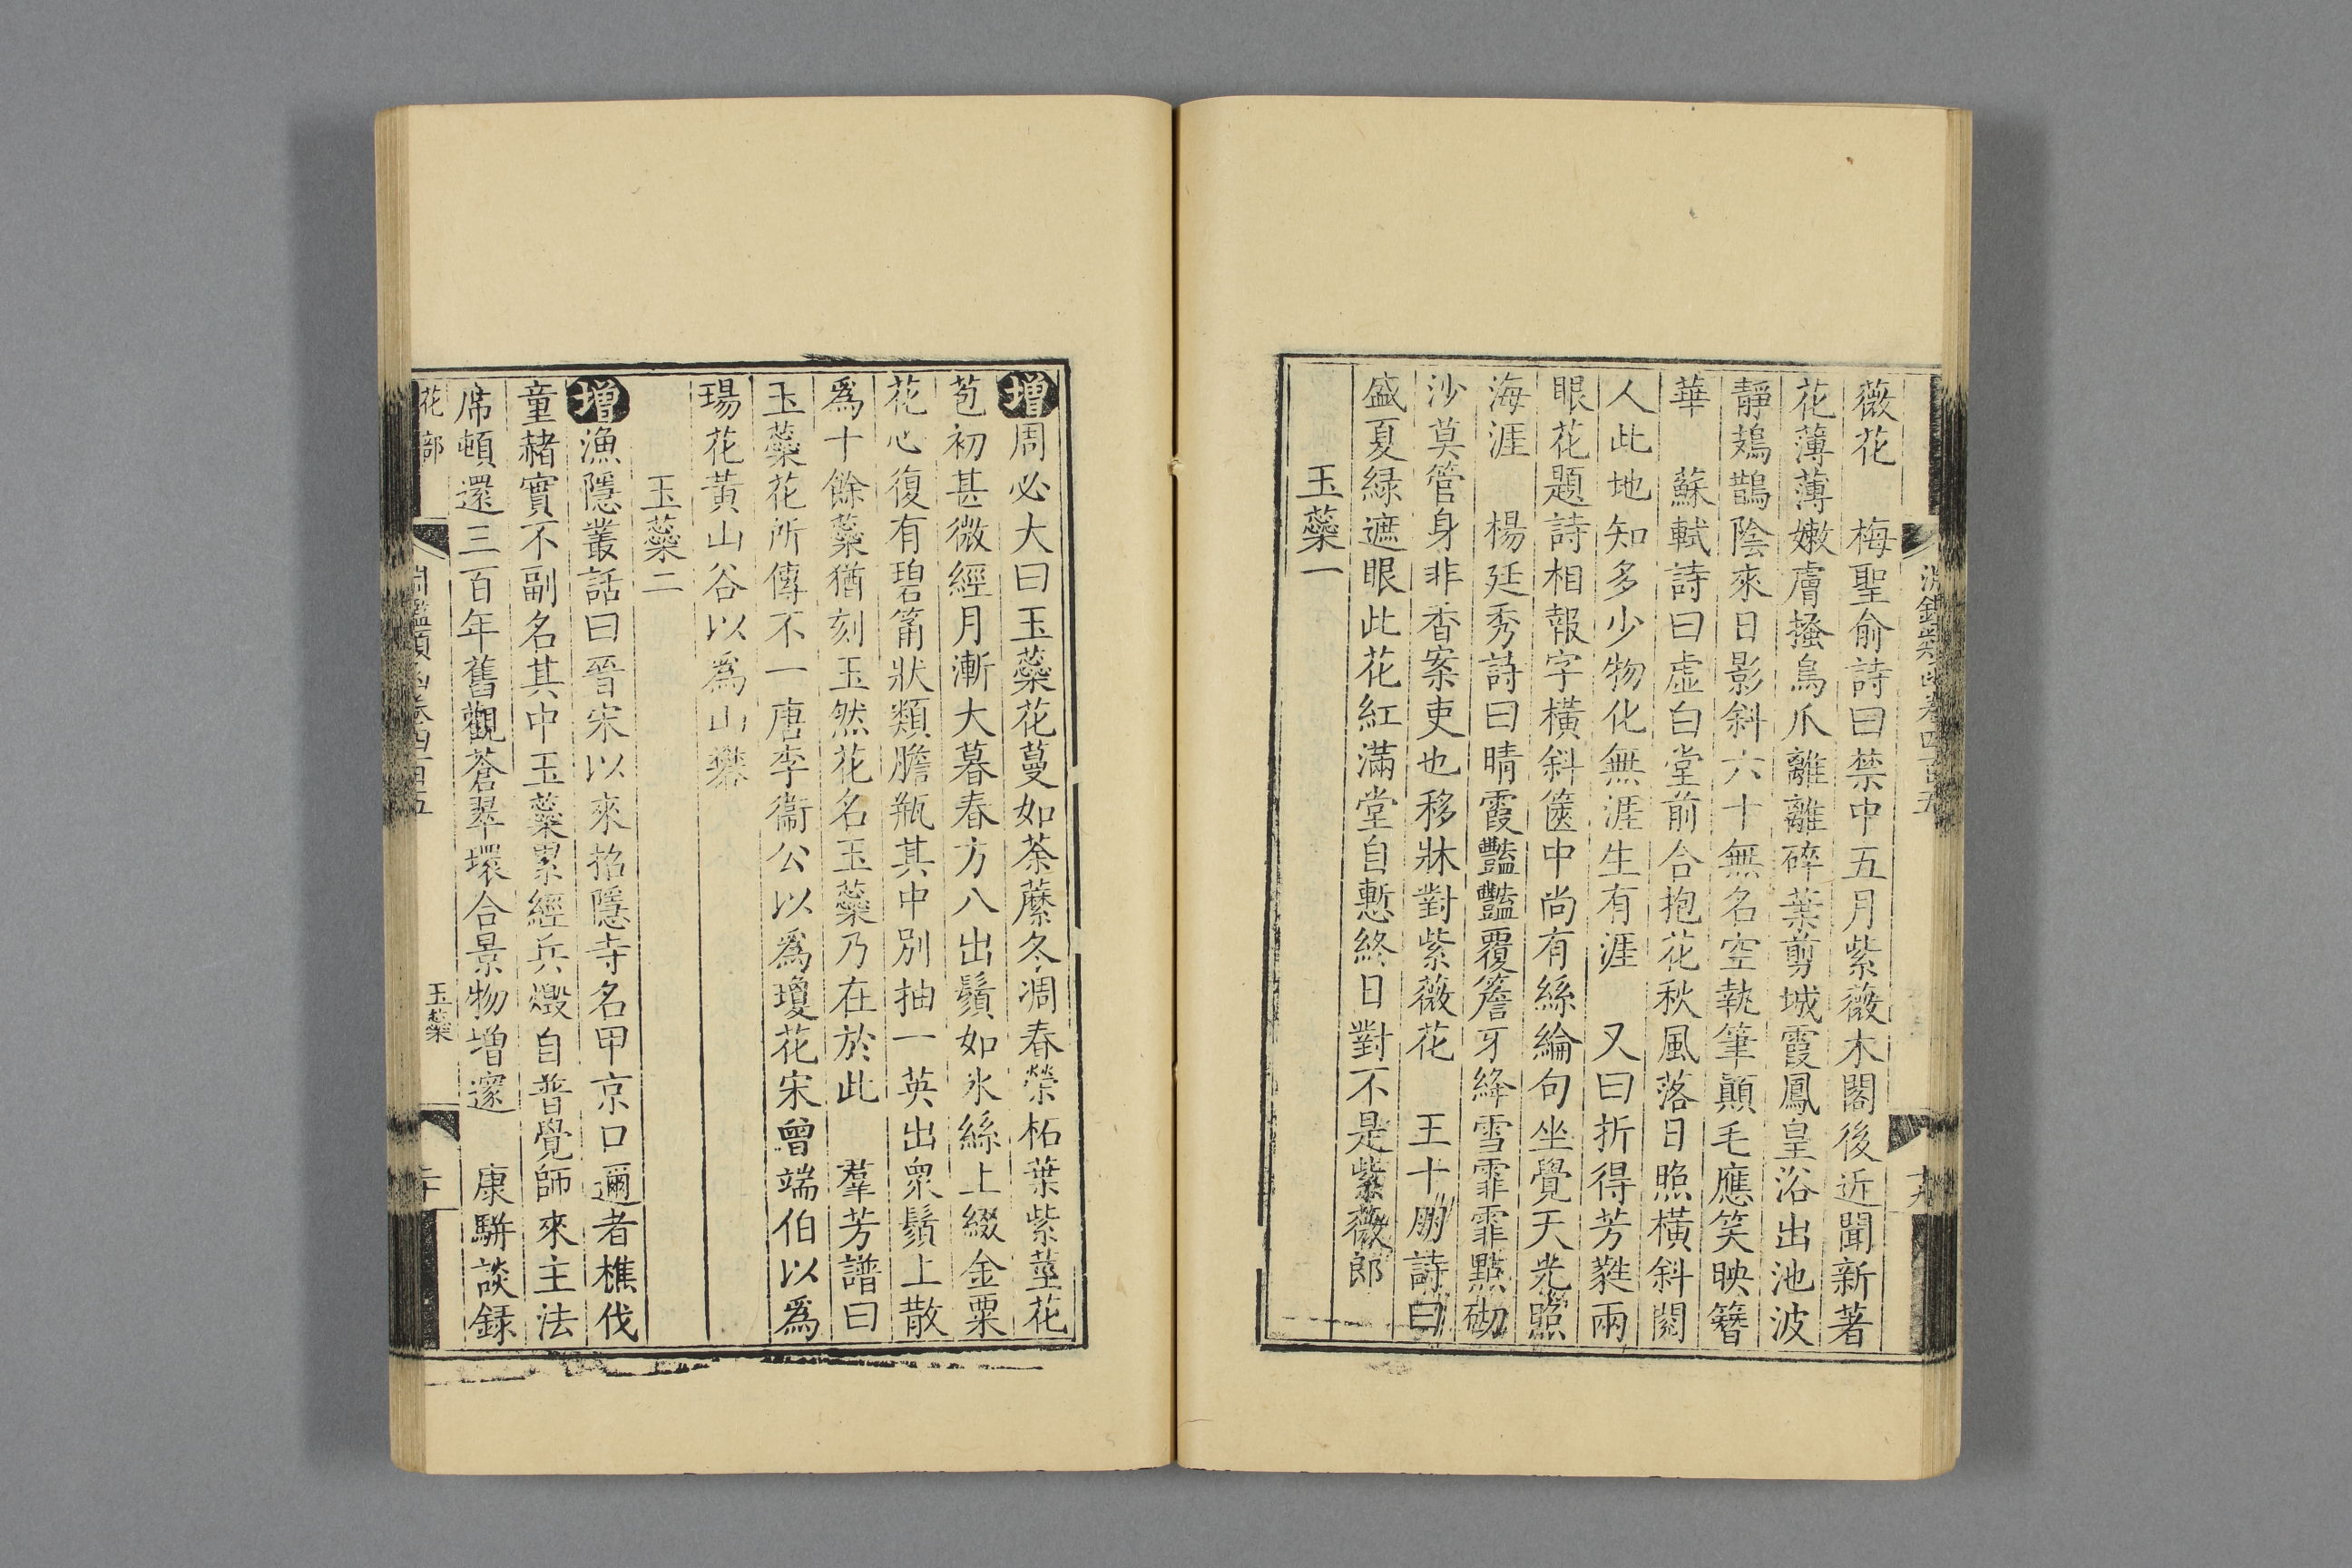 薇花　梅聖俞詩曰禁中五月紫薇木閣後近聞新著
花薄薄嫩膚搔鳥爪離離碎葉剪城霞鳳皇浴出池波
靜鳷鵲陰來日影斜六十無名空執筆顛毛應笑映簪
華　蘇軾詩曰虛白堂前合抱花秋風落日照橫斜閱
人此地知多少物化無涯生有涯　又曰折得芳蕤兩
眼花題詩相報字橫斜篋中尚有絲綸句坐覺天光照
海涯　楊廷秀詩曰晴霞豔豔覆簷牙絳雪霏霏點砌
沙莫管身非香案吏也移牀對紫薇花　王十朋詩曰
盛夏綠遮眼此花紅滿堂自慙終日對不是紫薇郎
玉蘂一
增周必大曰玉蘂花蔓如荼蘼冬凋春榮柘葉紫莖花
苞初甚微經月漸大暮春方八出鬚如氷絲上綴金粟
花心復有碧筩狀類膽瓶其中別抽一英出衆鬚上散
爲十餘蘂猶刻玉然花名玉蘂乃在於此　羣芳譜曰
玉蘂花所傳不一唐李衞公以爲瓊花宋曾端伯以爲
瑒花黃山谷以爲山礬
玉蘂二
增漁隱叢話曰晉宋以來招隱寺名甲京口邇者樵伐
童赭實不副名其中玉蘂累經兵燬自普覺師來主法
席頓還三百年舊觀蒼翠環合景物增邃　康駢談録
花部
玉蘂